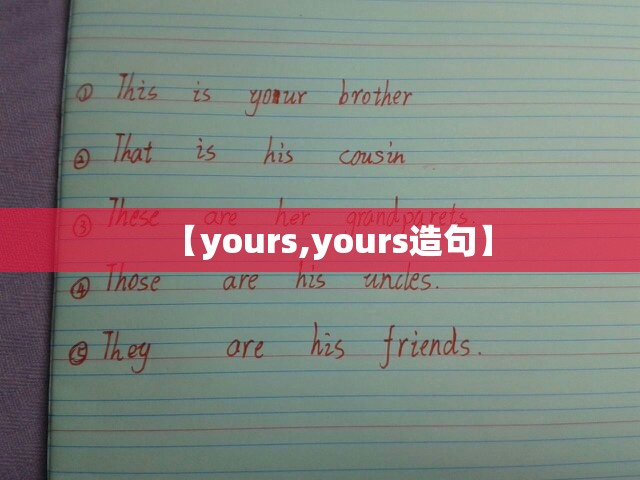 ① This is your brother
② That is his cousin
③ These are her grandparets.
【yours,yours造句】
④ Those are his uncles.
⑤ They are his friends.